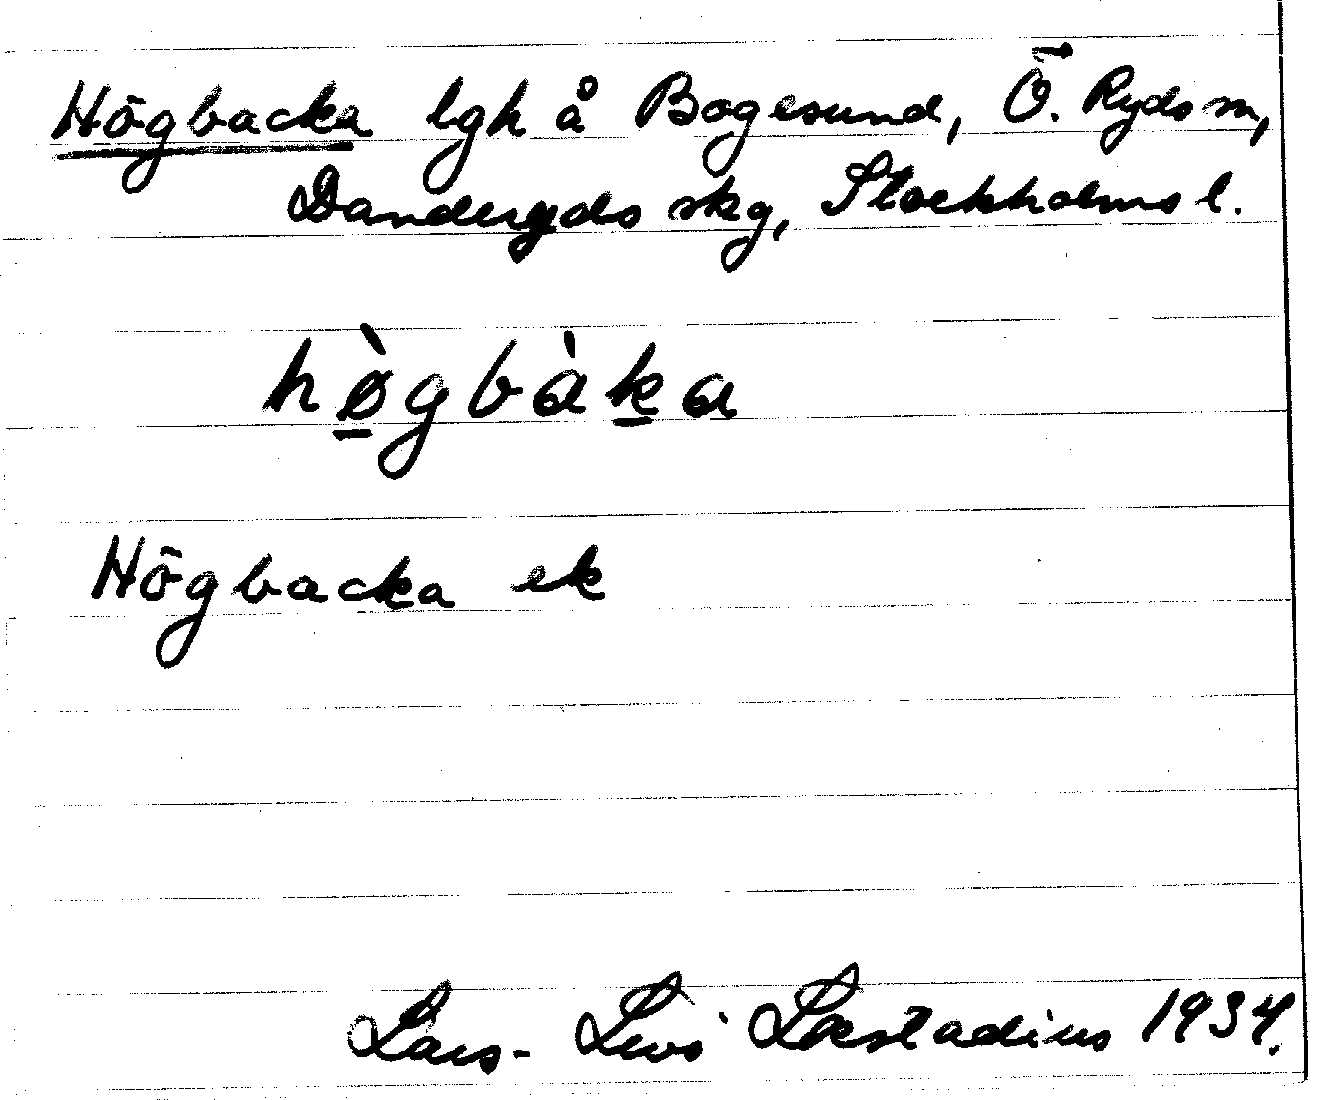 Högbacka lgh å Bogesund, Ö. Ryds sn,
Danderyds skg, Stockholms l.
hø̱̀gbàḵa
Högbacka ek
Lars-Levi Læstadius 1934.